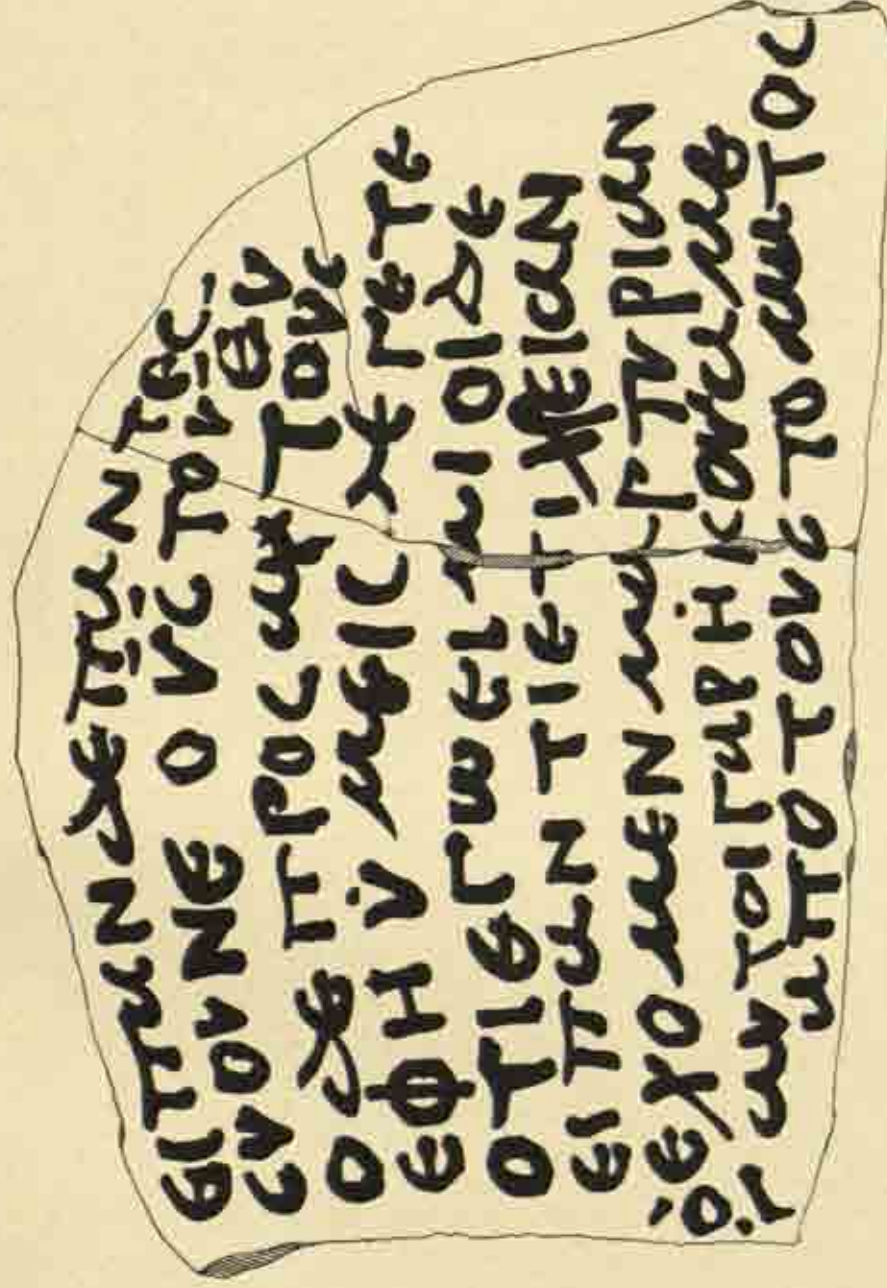 ΕΙΠΑΝ ΔΕ ΠΑΝΤΕC
CΥ ΟΥΝ Ε Ο ΥC ΤΟΥ ΘΥ
Ο ΔΕ ΠΡΟC ΑΥΤΟΥC
ΕΦΗ ΥΜΕΙC ΛΕΓΕΤΕ
ΟΤΙ ΕΓΩ ΕΙΜΙ ΟΙ ΔΕ
ΕΙΠΑΝ ΤΙ ΕΤΙ ΧΡΕΙΑΝ
ΕΧΟΜΕΝ ΜΑΡΤΥΡΙΑΝ
ΑΥΤΟΙ ΓΑΡ ΗΚΟΥCΑΜΕ
ΑΠΟ ΤΟΥ CΤΟΜΑΤΟC